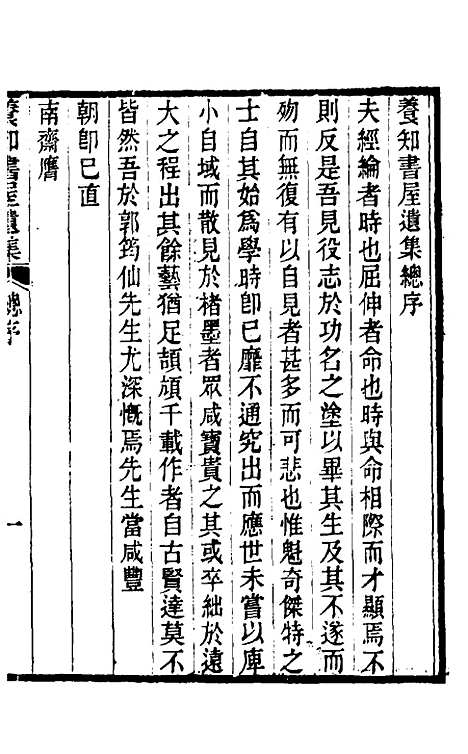 養知書屋遺集總序
夫經綸者時也屈伸者命也時與命相際而才顯焉不
則反是吾見役志於功名之塗以畢其生及其不遂而
歾而無復有以自見者甚多而可悲也惟魁奇傑特之
士自其始為學時卽已靡不通究出而應世未嘗以庫
小自域而散見於楮墨者眾咸寶貴之其或卒絀於遠
大之程出其餘藝猶足頡頏千載作者自古賢達莫不
皆然吾於郭筠仙先生尤深慨焉先生當咸豐
朝卽已直
南齋膺
養知書屋遺集
總序
一